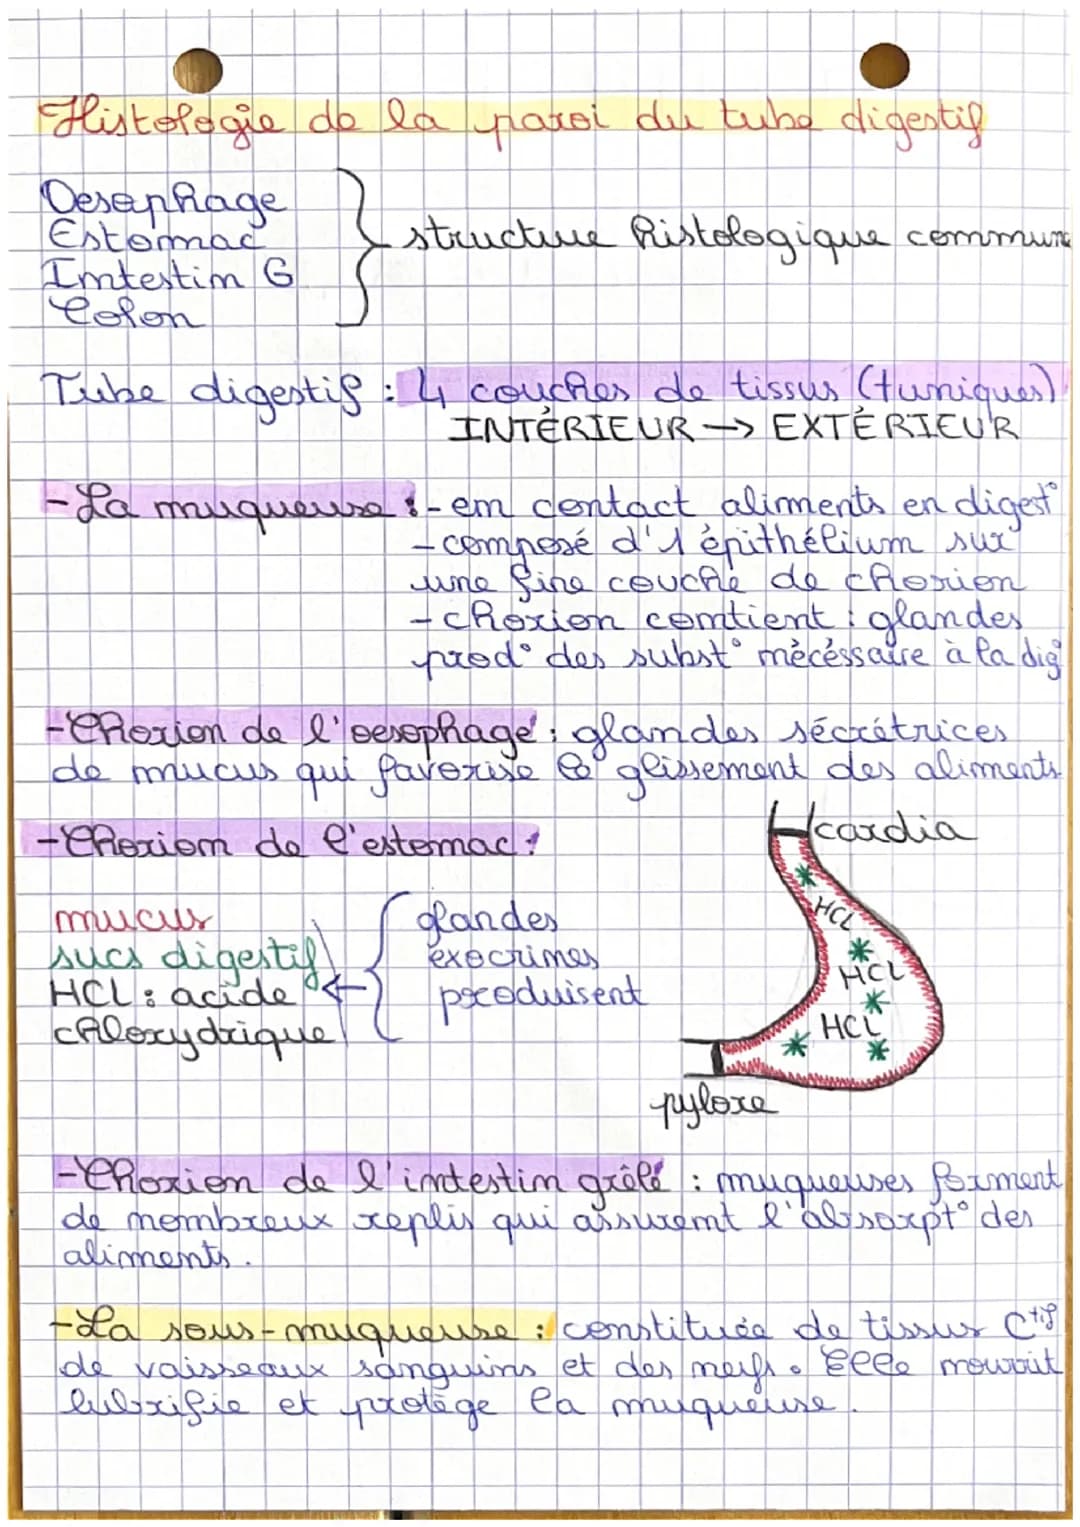 Histologie de la paroi du tube digestif
Oesophage
Estomac
Intestin G
Colon
structure histologique commune
Tube digestif : 4 couches de tissus (tuniques)
INTÉRIEUR → EXTÉRIEUR
- La muqueuse : - en contact aliments en digest°
- composé d'1 épithélium sur
une fine couche de chorion
- chorion contient : glandes
prod° des subst° nécéssaire à la dig°
- Chorion de l'oesophage : glandes sécrétrices
de mucus qui favorise le glissement des aliments
- Chorion de l'estomac :
cardia
mucus
sucs digestif
HCL : acide
chloxydrique
←
glandes
exocrines
produisent
HCL
HCL
HCL
pylore
- Chorion de l'intestin grêlé : muqueuses forment
de nombreux replis qui assurent l'absorpt° des
aliments.
- La sous-muqueuse : constituée de tissus Ctif
de vaisseaux sanguins et des neifs. Elle nourrit
lubrifie et protège la muqueuse.